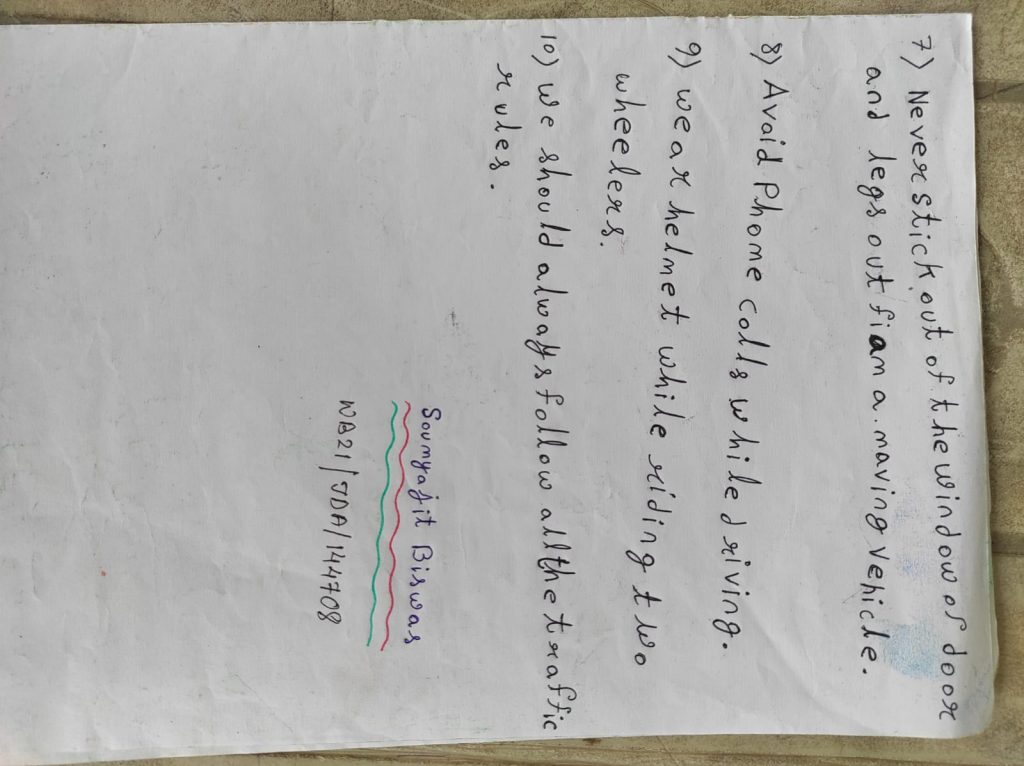 7) Never stick out of the window of door
and legs out fiam a. maving vehicle.
8) Avaid Phome calls while driving.
9) wear helmet while riding two
wheelers.
10) we should always follow all the traffic
rules.
Soumyajit Biswas
WB21/JDA/144708